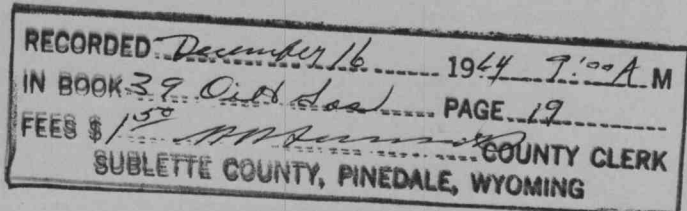 RECORDED December 16 1964 9:00 A M
IN BOOK 39 Oil & Gas PAGE 19
FEES $ 1.50 COUNTY CLERK
SUBLETTE COUNTY, PINEDALE, WYOMING